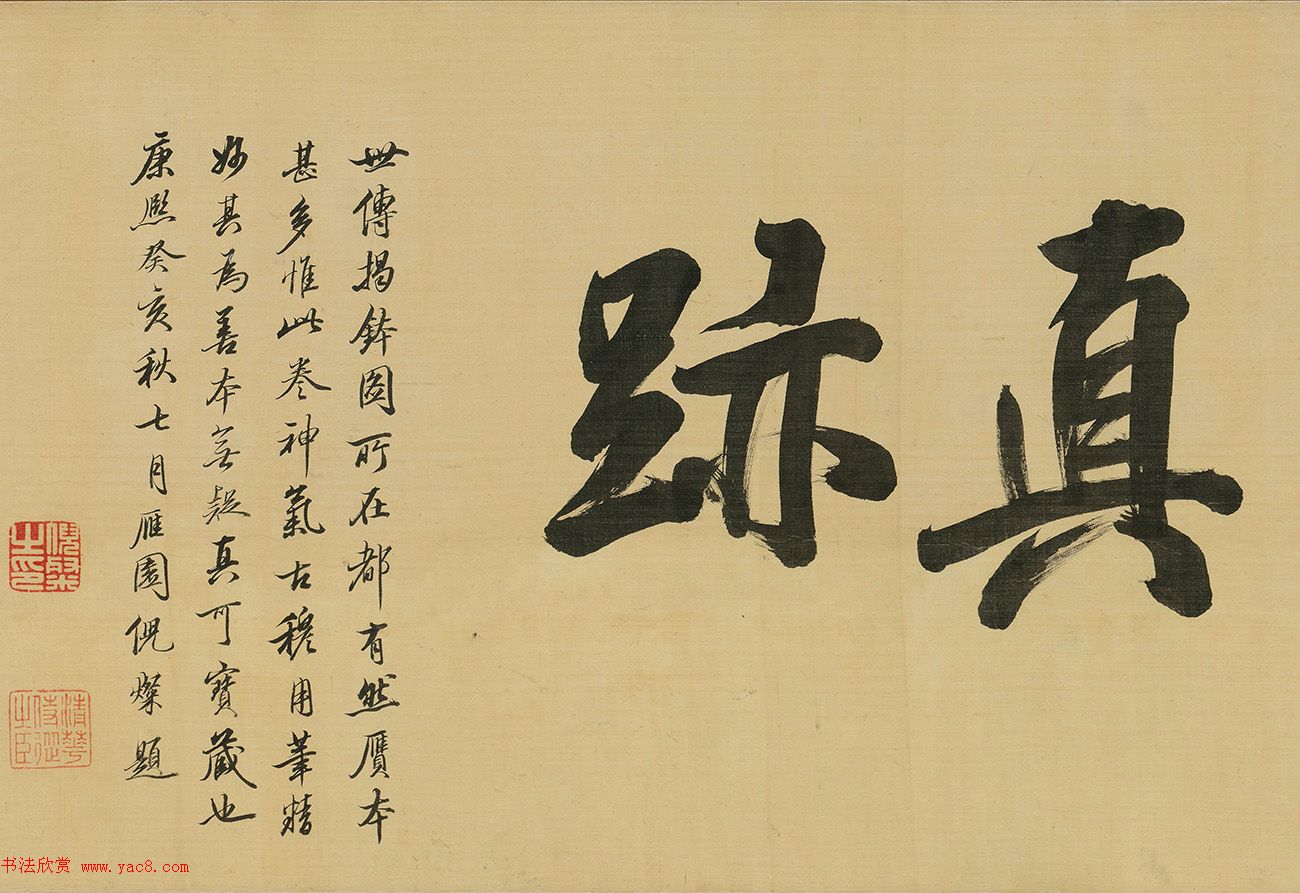 真跡
世傳揭鉢圖所在都有然贋本
甚多惟此卷神氣古穆用筆精
妙其爲善本無疑真可寶藏也
康熙癸亥秋七月雁園倪燦題
倪燦之印
清華侍從之臣
书法欣赏 www.yac8.com